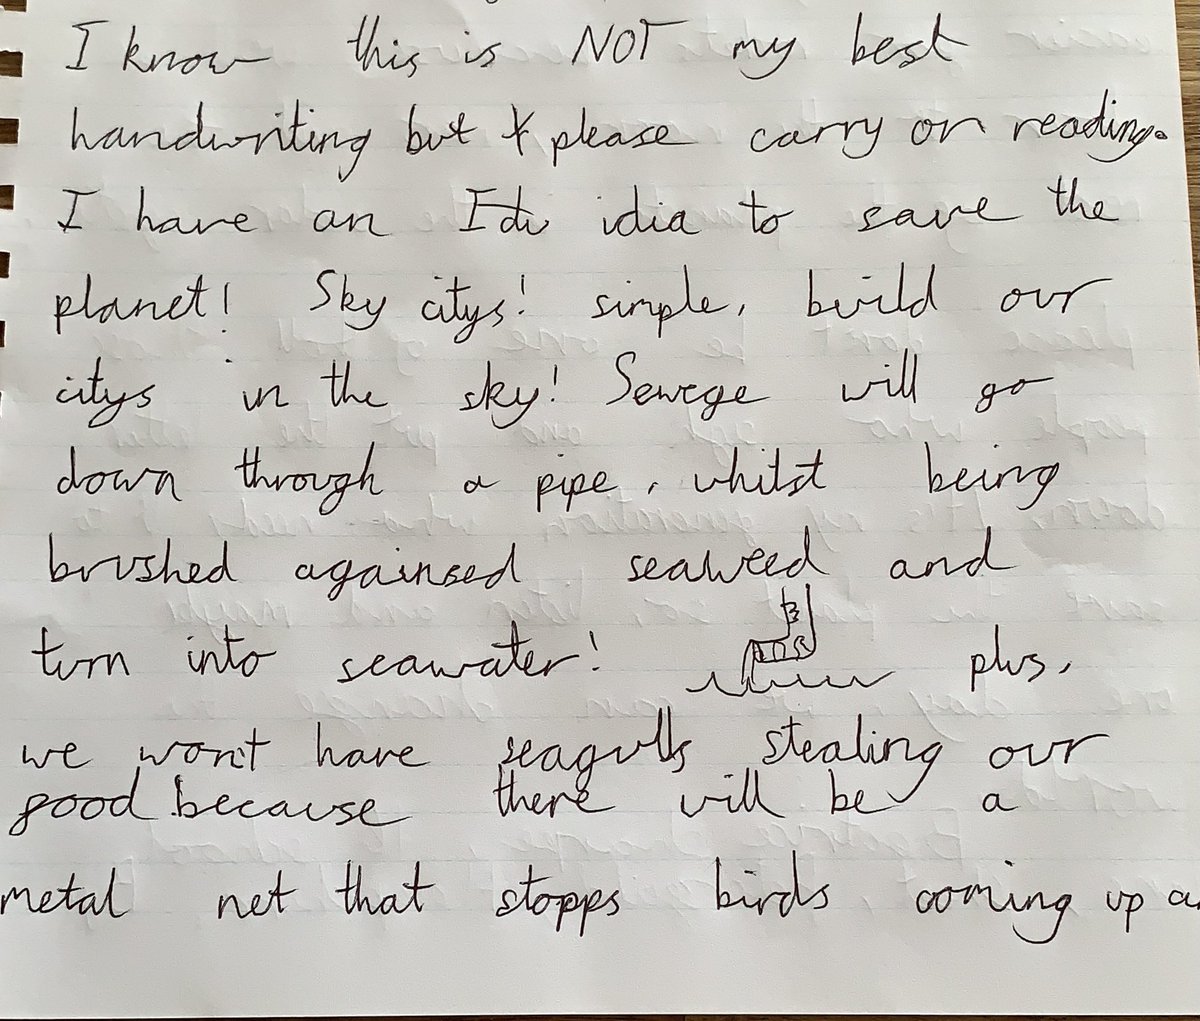 I know this is NOT my best
handwriting but please carry on reading.
I have an idia to save the
planet! Sky citys! simple, build our
citys in the sky! Sewege will go
down through a pipe, whilst being
brushed againsed seaweed and
turn into seawater! plus,
we won't have seagulls stealing our
food because there will be a
metal net that stopps birds coming up